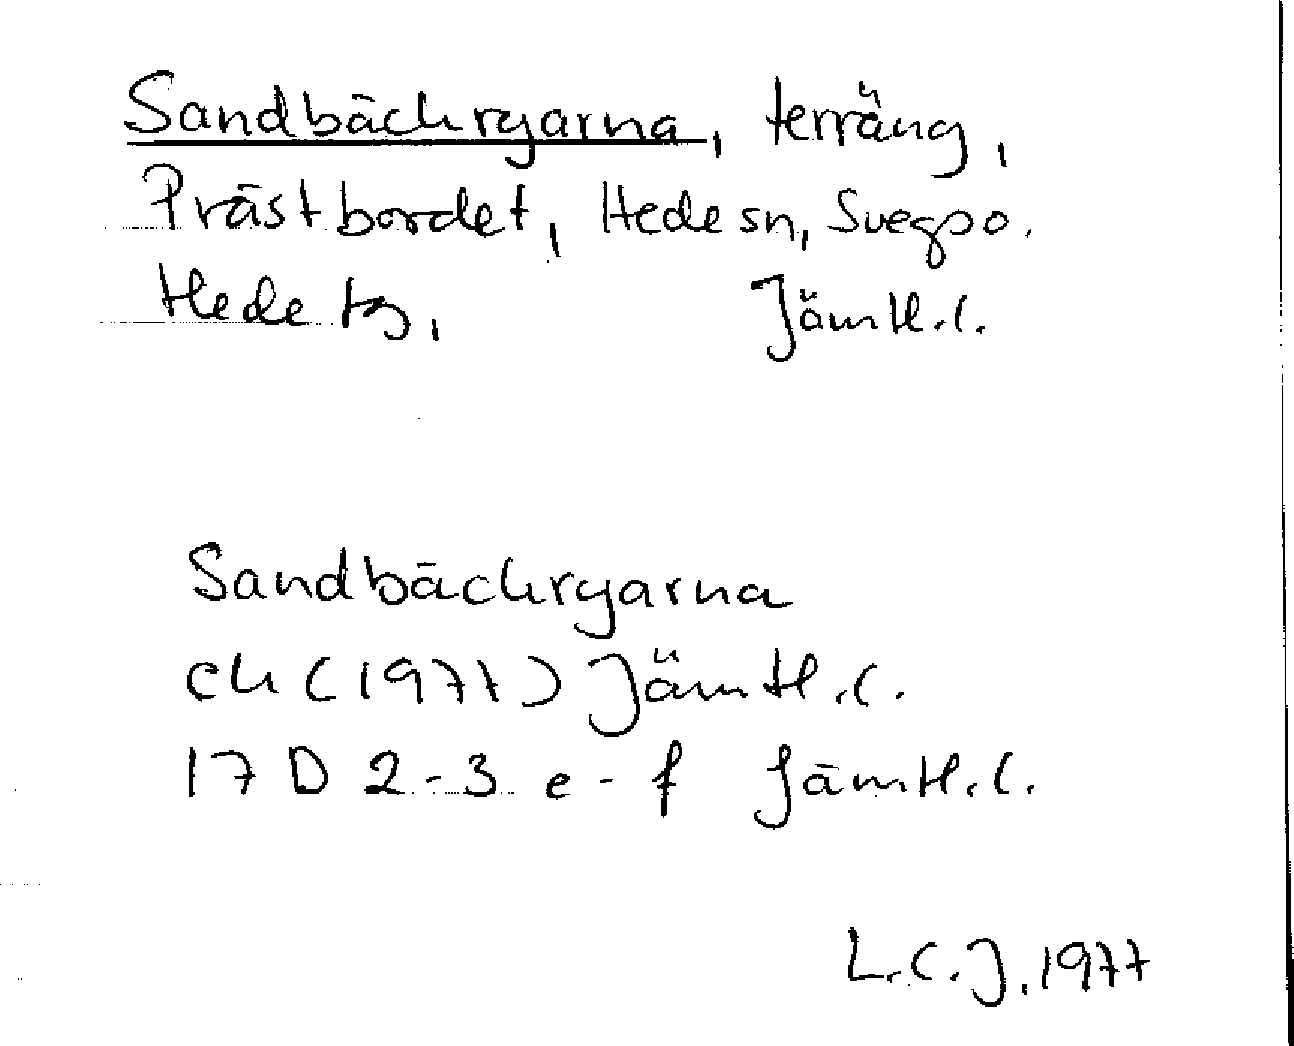 Sandbäckryarna, terräng,
Prästbordet, Hede sn, Svegs po.
Hede tg, Jämtl.l.
Sandbäckryarna
ek (1971) Jämtl.l.
17 D 2-3 e-f Jämtl.l.
L.C.J. 1977